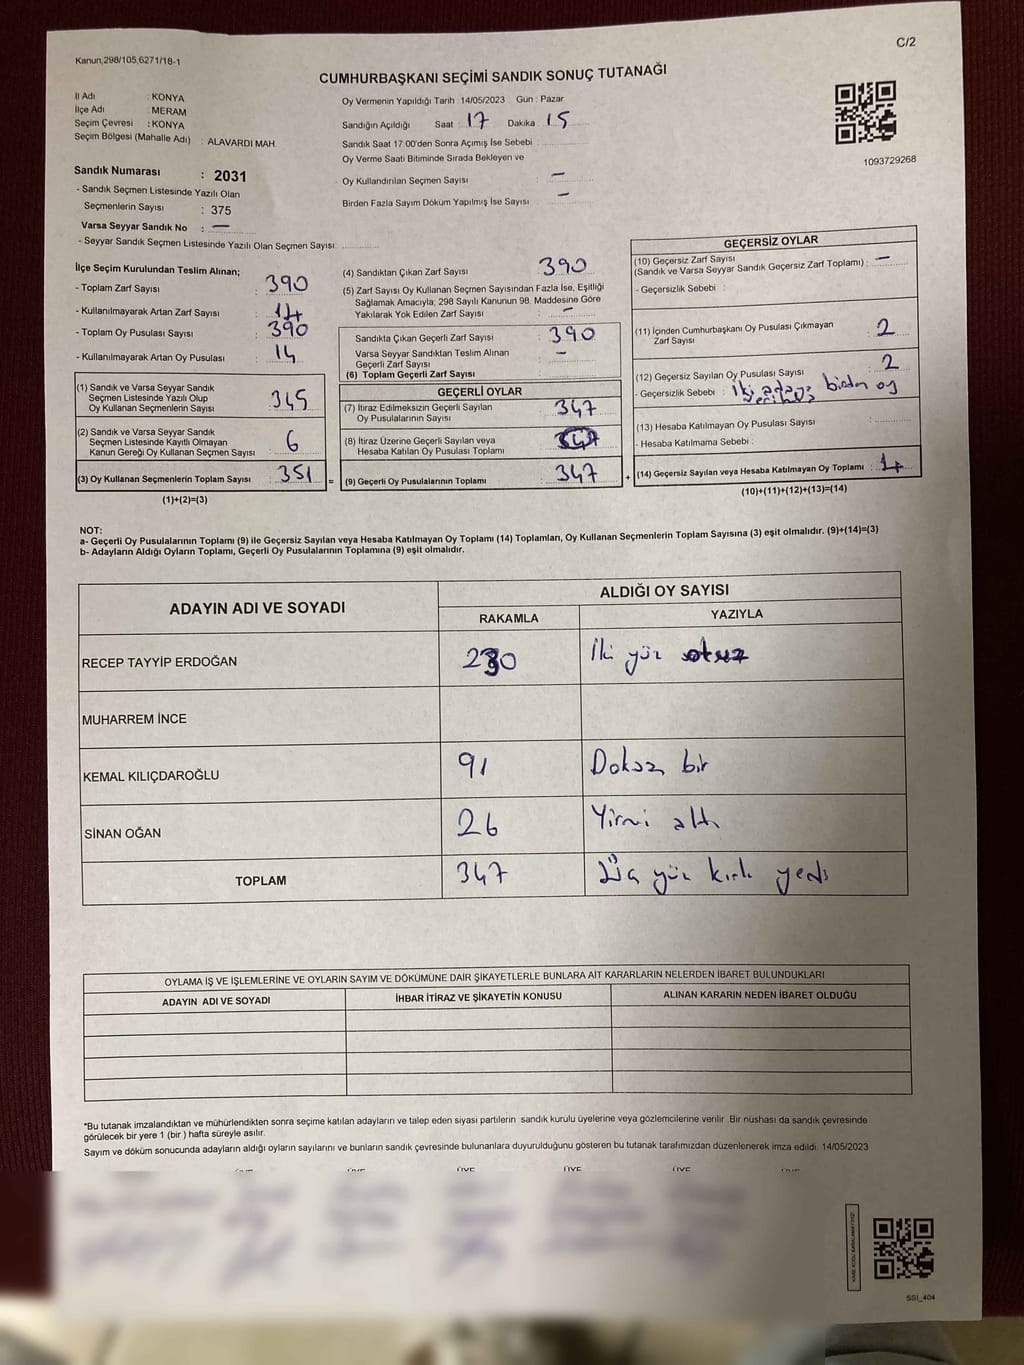 Kanun,298/105,6271/18-1
C/2
CUMHURBAŞKANI SEÇİMİ SANDIK SONUÇ TUTANAĞI
İl Adı : KONYA
İlçe Adı : MERAM
Seçim Çevresi : KONYA
Seçim Bölgesi (Mahalle Adı) : ALAVARDI MAH.
Oy Vermenin Yapıldığı Tarih : 14/05/2023 Gün : Pazar
Sandığın Açıldığı Saat : 17 Dakika : 15
Sandık Saat 17:00'den Sonra Açımış İse Sebebi :
Oy Verme Saati Bitiminde Sırada Bekleyen ve
Oy Kullandırılan Seçmen Sayısı : —
Birden Fazla Sayım Döküm Yapılmış İse Sayısı : —
1093729268
Sandık Numarası : 2031
- Sandık Seçmen Listesinde Yazılı Olan
Seçmenlerin Sayısı : 375
Varsa Seyyar Sandık No : —
- Seyyar Sandık Seçmen Listesinde Yazılı Olan Seçmen Sayısı:
İlçe Seçim Kurulundan Teslim Alınan;
- Toplam Zarf Sayısı : 390
- Kullanılmayarak Artan Zarf Sayısı : 14
- Toplam Oy Pusulası Sayısı : 390
- Kullanılmayarak Artan Oy Pusulası : 14
(1) Sandık ve Varsa Seyyar Sandık
Seçmen Listesinde Yazılı Olup
Oy Kullanan Seçmenlerin Sayısı : 345
(2) Sandık ve Varsa Seyyar Sandık
Seçmen Listesinde Kayıtlı Olmayan
Kanun Gereği Oy Kullanan Seçmen Sayısı : 6
(3) Oy Kullanan Seçmenlerin Toplam Sayısı : 351 =
(1)+(2)=(3)
(4) Sandıktan Çıkan Zarf Sayısı : 390
(5) Zarf Sayısı Oy Kullanan Seçmen Sayısından Fazla İse, Eşitliği
Sağlamak Amacıyla; 298 Sayılı Kanunun 98. Maddesine Göre
Yakılarak Yok Edilen Zarf Sayısı : —
Sandıkta Çıkan Geçerli Zarf Sayısı : 390
Varsa Seyyar Sandıktan Teslim Alınan
Geçerli Zarf Sayısı : —
(6) Toplam Geçerli Zarf Sayısı
GEÇERLİ OYLAR
(7) İtiraz Edilmeksizin Geçerli Sayılan
Oy Pusulalarının Sayısı : 347
(8) İtiraz Üzerine Geçerli Sayılan veya
Hesaba Katılan Oy Pusulası Toplamı :
(9) Geçerli Oy Pusulalarının Toplamı : 347 +
GEÇERSİZ OYLAR
(10) Geçersiz Zarf Sayısı
(Sandık ve Varsa Seyyar Sandık Geçersiz Zarf Toplamı) : —
- Geçersizlik Sebebi :
(11) İçinden Cumhurbaşkanı Oy Pusulası Çıkmayan
Zarf Sayısı : 2
(12) Geçersiz Sayılan Oy Pusulası Sayısı : 2
- Geçersizlik Sebebi : iki adaya birden oy
(13) Hesaba Katılmayan Oy Pusulası Sayısı :
- Hesaba Katılmama Sebebi :
(14) Geçersiz Sayılan veya Hesaba Katılmayan Oy Toplamı : 4
(10)+(11)+(12)+(13)=(14)
NOT:
a- Geçerli Oy Pusulalarının Toplamı (9) ile Geçersiz Sayılan veya Hesaba Katılmayan Oy Toplamı (14) Toplamları, Oy Kullanan Seçmenlerin Toplam Sayısına (3) eşit olmalıdır. (9)+(14)=(3)
b- Adayların Aldığı Oyların Toplamı, Geçerli Oy Pusulalarının Toplamına (9) eşit olmalıdır.
ADAYIN ADI VE SOYADI ALDIĞI OY SAYISI
RAKAMLA YAZIYLA
RECEP TAYYİP ERDOĞAN 230 İki yüz otuz
MUHARREM İNCE
KEMAL KILIÇDAROĞLU 91 Doksan bir
SİNAN OĞAN 26 Yirmi altı
TOPLAM 347 Üç yüz kırk yedi
OYLAMA İŞ VE İŞLEMLERİNE VE OYLARIN SAYIM VE DÖKÜMÜNE DAİR ŞİKAYETLERLE BUNLARA AİT KARARLARIN NELERDEN İBARET BULUNDUKLARI
ADAYIN ADI VE SOYADI İHBAR İTİRAZ VE ŞİKAYETİN KONUSU ALINAN KARARIN NEDEN İBARET OLDUĞU
*Bu tutanak imzalandıktan ve mühürlendikten sonra seçime katılan adayların ve talep eden siyasi partilerin sandık kurulu üyelerine veya gözlemcilerine verilir. Bir nüshası da sandık çevresinde
görülecek bir yere 1 (bir) hafta süreyle asılır.
Sayım ve döküm sonucunda adayların aldığı oyların sayılarını ve bunların sandık çevresinde bulunanlara duyurulduğunu gösteren bu tutanak tarafımızdan düzenlenerek imza edildi. 14/05/2023
ÜYE ÜYE ÜYE
SSI_404